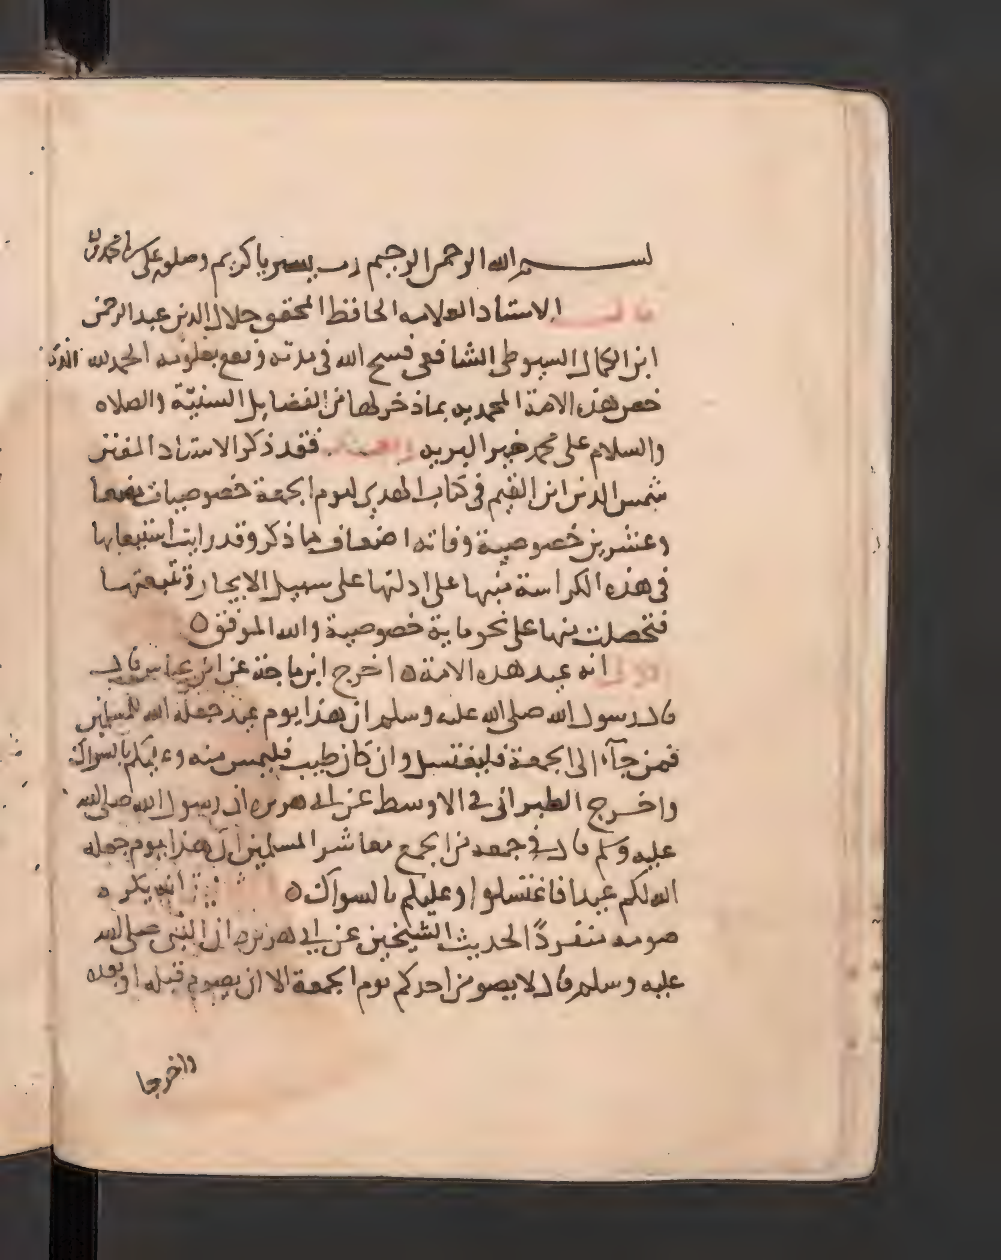 بسم الله الرحمن الرحيم رب يسر يا كريم وصل على
قال الاستاد العلامه الحافظ المحقق جلال الدين عبد الرحمن
ابن الكمال السيوطى الشافعى فسح الله فى مدته ونفع بعلومه الحمد لله الذى
خص هذه الامة المحمديه بما ذخر لها من الفضايل السنيّة والصلاه
والسلام على محمد خير البريه وبعد فقد ذكر الاستاد المفنن
شمس الدين ابن القيم فى كتاب الهدى ليوم الجمعة خصوصيات بضعا
وعشرين خصوصية وفاته اضعاف ما ذكر وقد رايت استيعابها
فى هذه الكراسة منبها على ادلتها على سبيل الايجاز وتتبعتها
فتحصلت منها على نحو ماية خصوصية والله الموفق ه
الاولى انه عيد هذه الامة ه اخرج ابن ماجة عن ابن عباس قال
قال رسول الله صلى الله عليه وسلم ان هذا يوم عيد جعله الله للمسلمين
فمن جآء الى الجمعة فليغتسل وان كان طيب فليمس منه وعليكم بالسواك
واخرج الطبرانى فى الاوسط عن ابى هريره ان رسول الله صلى الله
عليه وسلم قال فى جمعه من الجمع معاشر المسلمين ان هذا يوم جعله
الله لكم عيدا فاغتسلوا وعليكم بالسواك ه انه يكره
صومه منفردًا لحديث الشيخين عن ابى هريره ان النبى صلى الله
عليه وسلم قال لا يصومن احدكم يوم الجمعة الا ان يصوم قبله او بعده
واخرجا